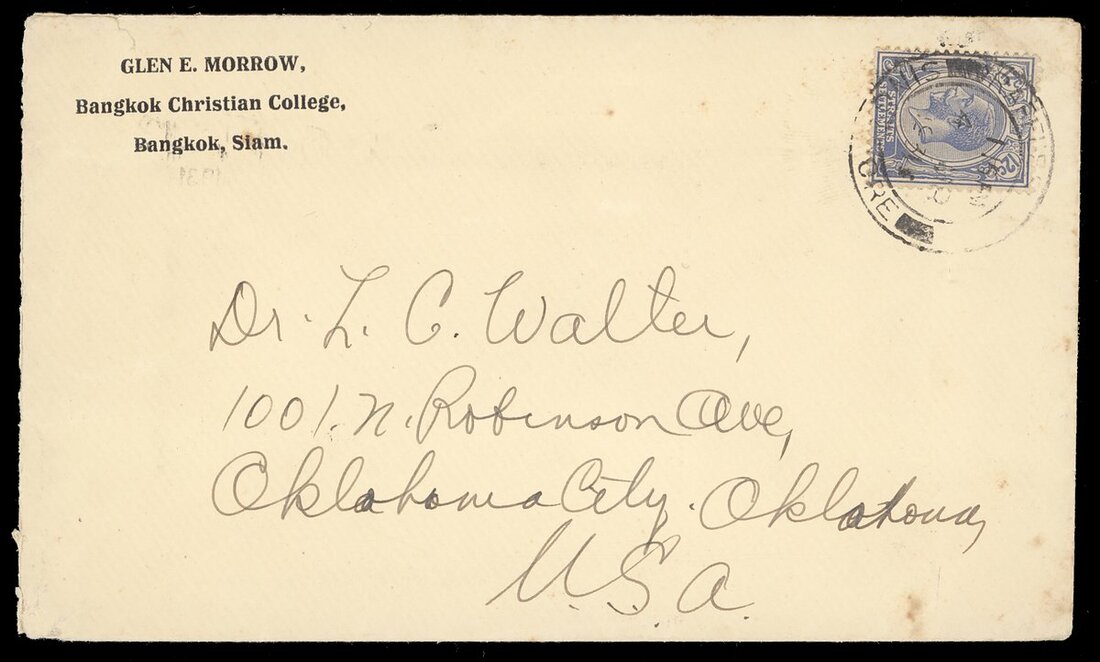 GLEN E. MORROW,
Bangkok Christian College,
Bangkok, Siam.
STRAITS
SETTLEMENTS
12
Dr. L. C. Walter,
1001. N. Robinson Ave,
Oklahoma City. Oklahoma,
U.S.A.